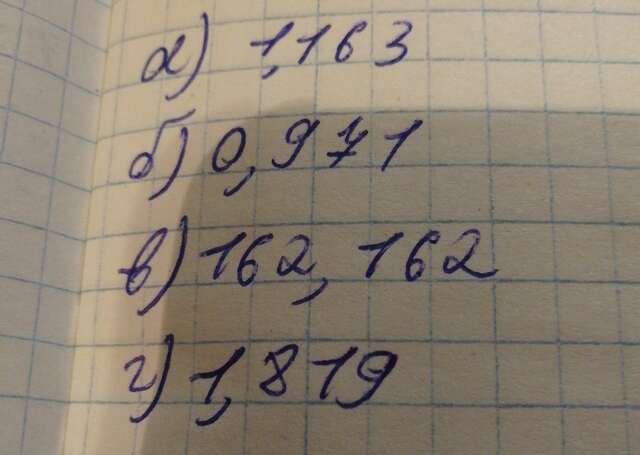 а) 1,163
б) 0,971
в) 162,162
г) 1,819